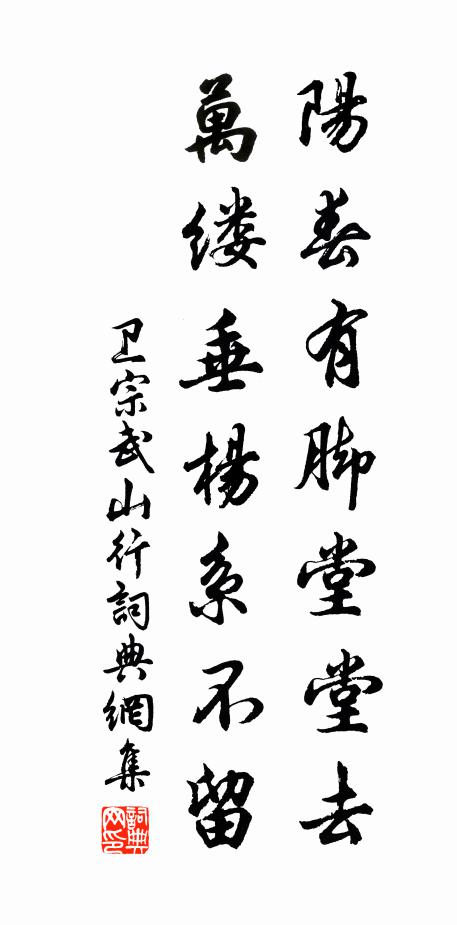 陽春有脚堂堂去
萬缕垂楊系不留
卫宗武山行詞典網集
詞典網印